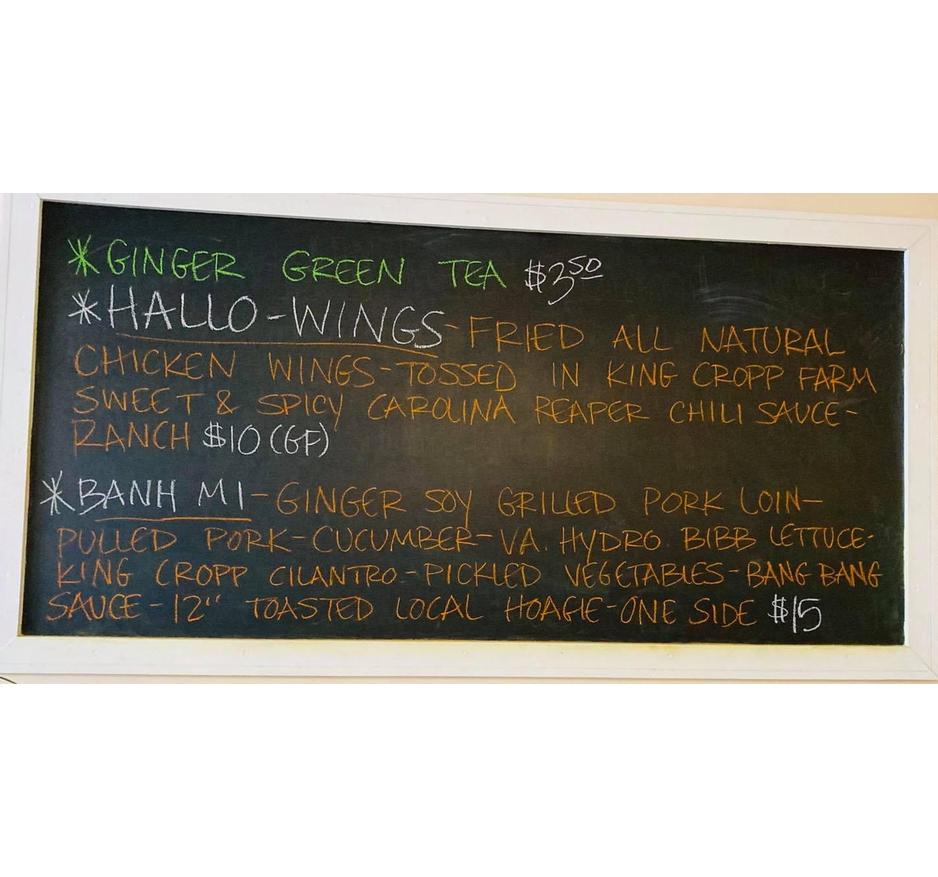 *GINGER GREEN TEA $3.50
*HALLO-WINGS-FRIED ALL NATURAL
CHICKEN WINGS-TOSSED IN KING CROPP FARM
SWEET & SPICY CAROLINA REAPER CHILI SAUCE-
RANCH $10 (GF)
*BANH MI-GINGER SOY GRILLED PORK LOIN-
PULLED PORK-CUCUMBER-VA. HYDRO BIBB LETTUCE-
KING CROPP CILANTRO-PICKLED VEGETABLES-BANG BANG
SAUCE-12" TOASTED LOCAL HOAGIE-ONE SIDE $15